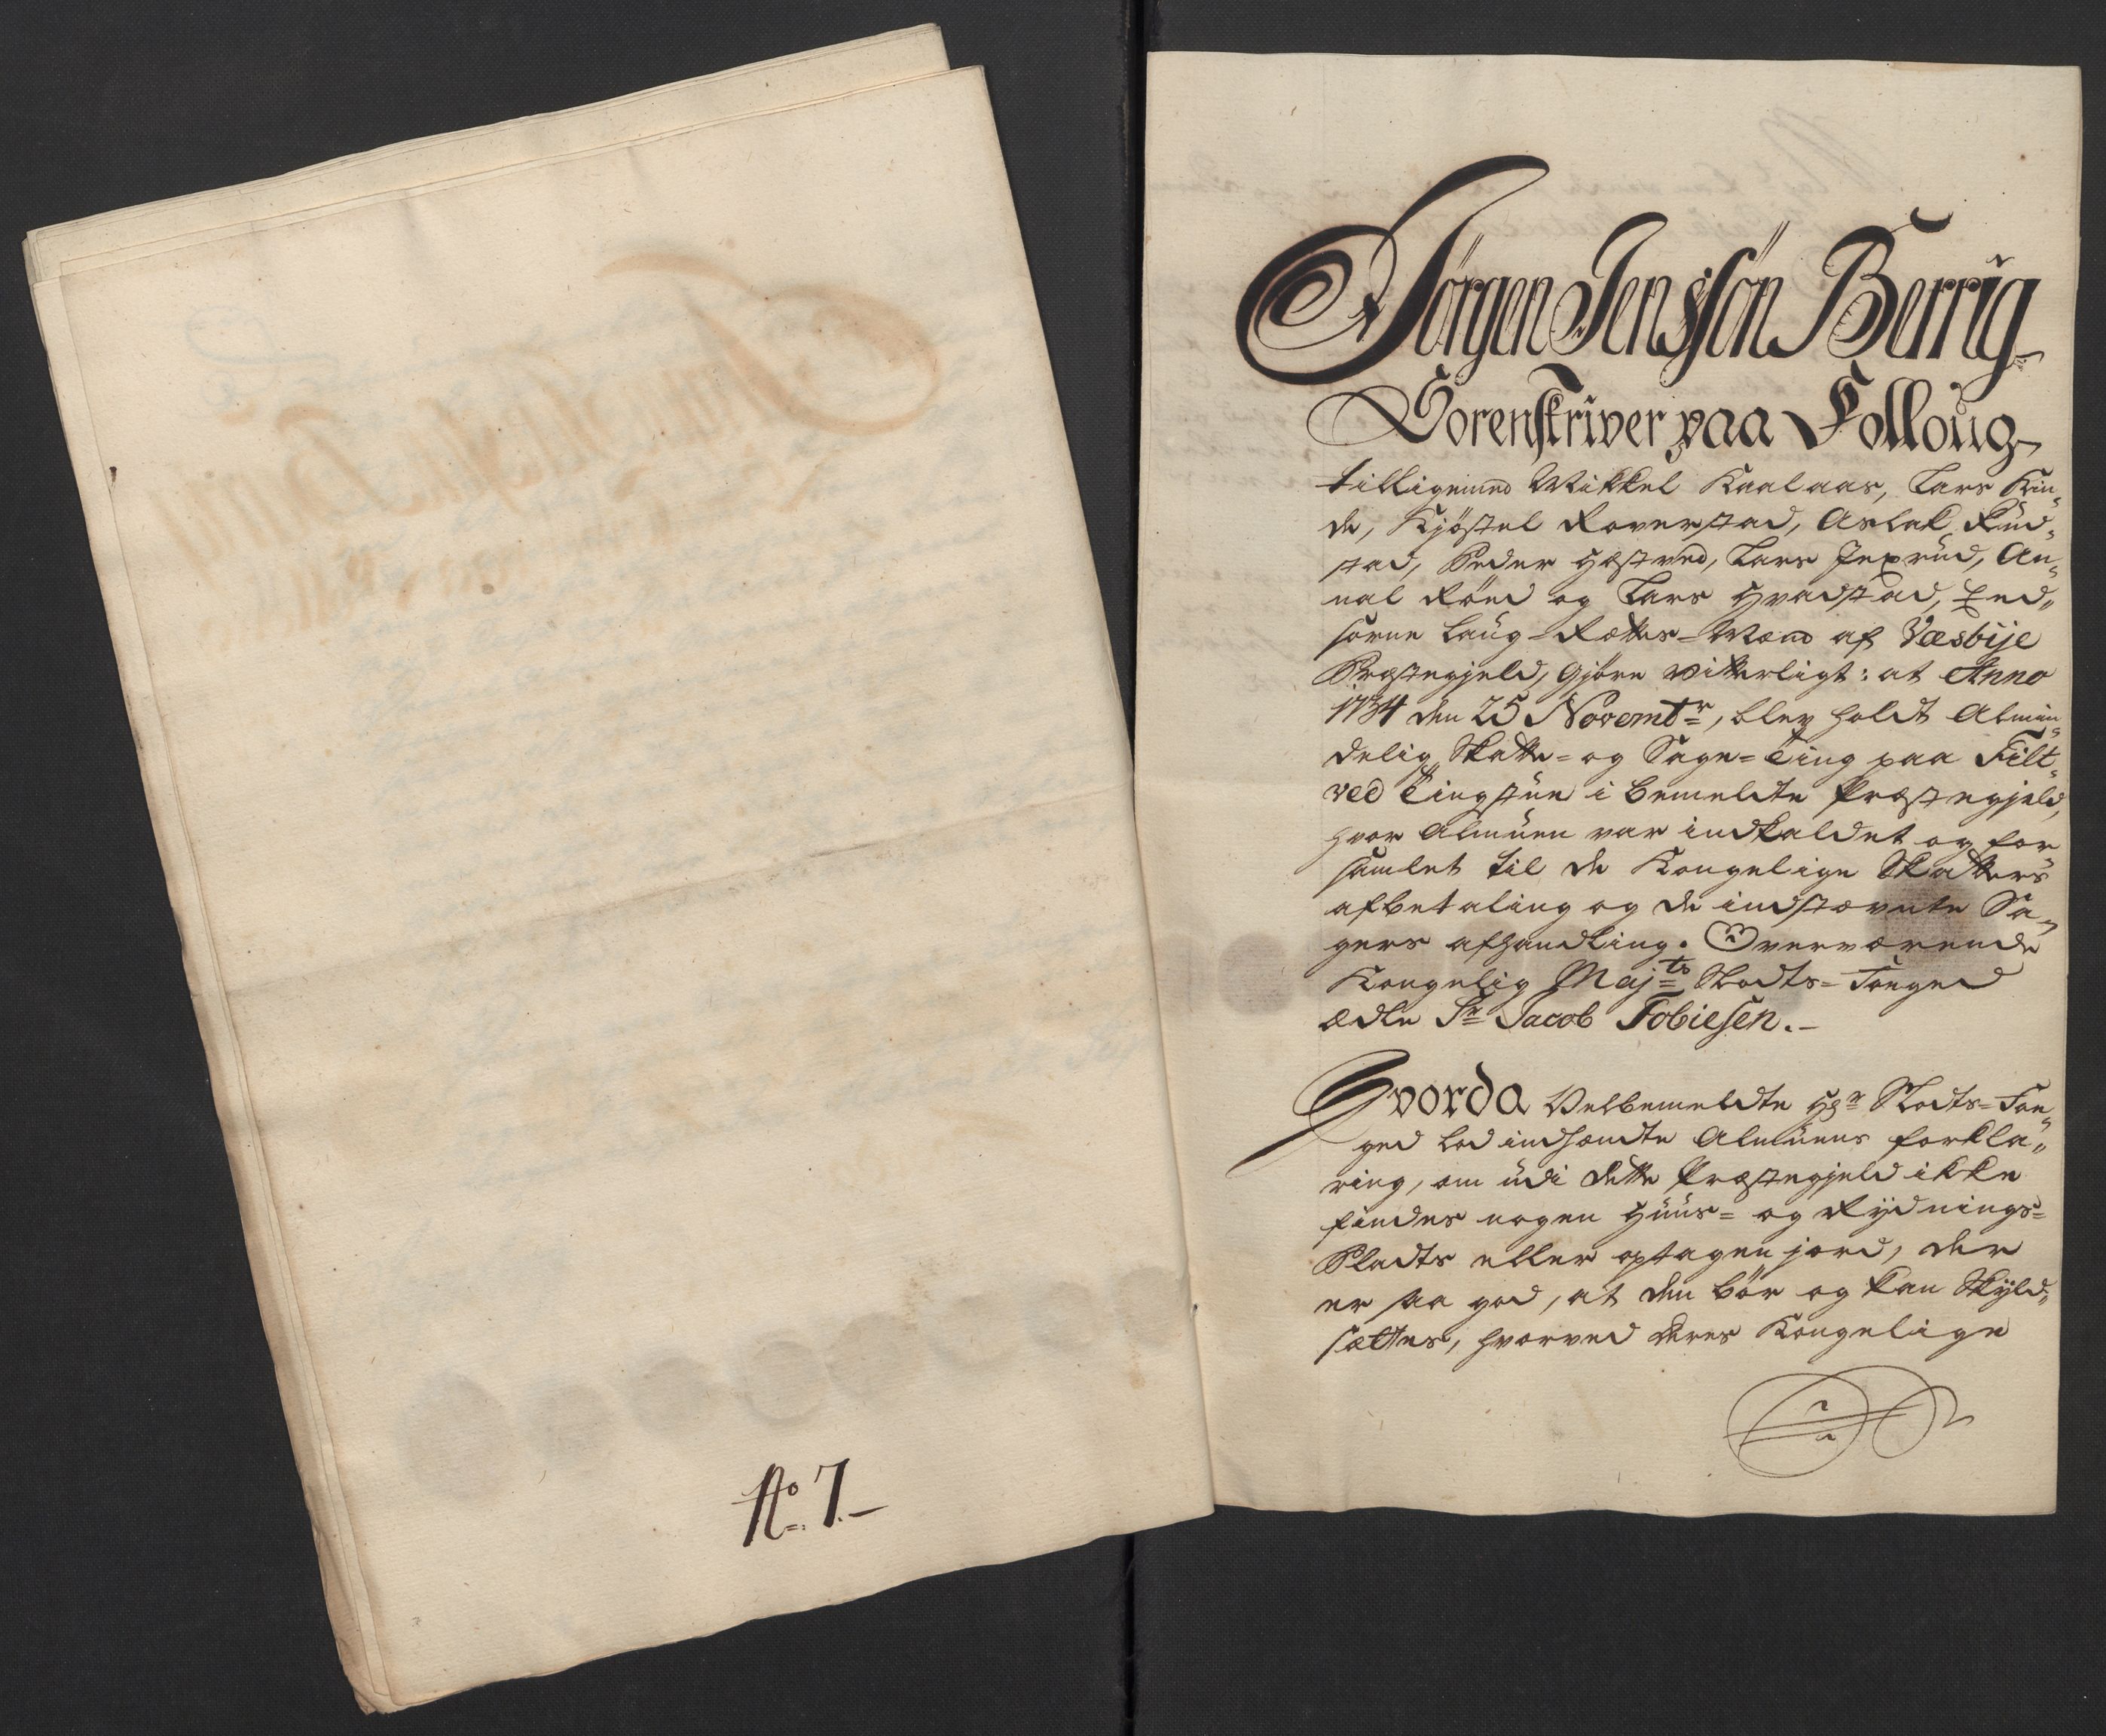 No. 7.
Jörgen Jenssön Berrig
Sorenskriver paa Folloug
tilligemed Mikkel Kaalaas, Lars
de, Kjöstel Roverstad, Aslak Rud„
stad, Peder Hæstved, Lars Jexrud, An„
nal Röed og Lars Hvadstad, Eed„
sorne Laug-Rættes-Mænd af Væsbije
Præstegjeld, Gjöre vitterligt: at Anno
1734 den 25 Novembr, blev holdt Almin„
delig Skatte= og Sage=Ting paa Filt„
ved Tingstue i bemeldte Præstegjeld,
hvor Almuen var indkaldet og for„
samlet til de Kongelige Skatters
afbetaling og de indstævnte Sa„
gers afhandling. Overværende
Kongelig Majts Foged
ædle Sr Jacob Tobiesen.-
Hvorda Velbemeldte Hr Fou„
ged lod indhændte Almuens forkla„
ring, om udi dette Præstegjeld ikke
findes nogen Huus= og Rydnings=
Pladts eller optagen jord, der
er saa god, at den bör og kan Skyld„
sættes, hvorved deres Kongelige